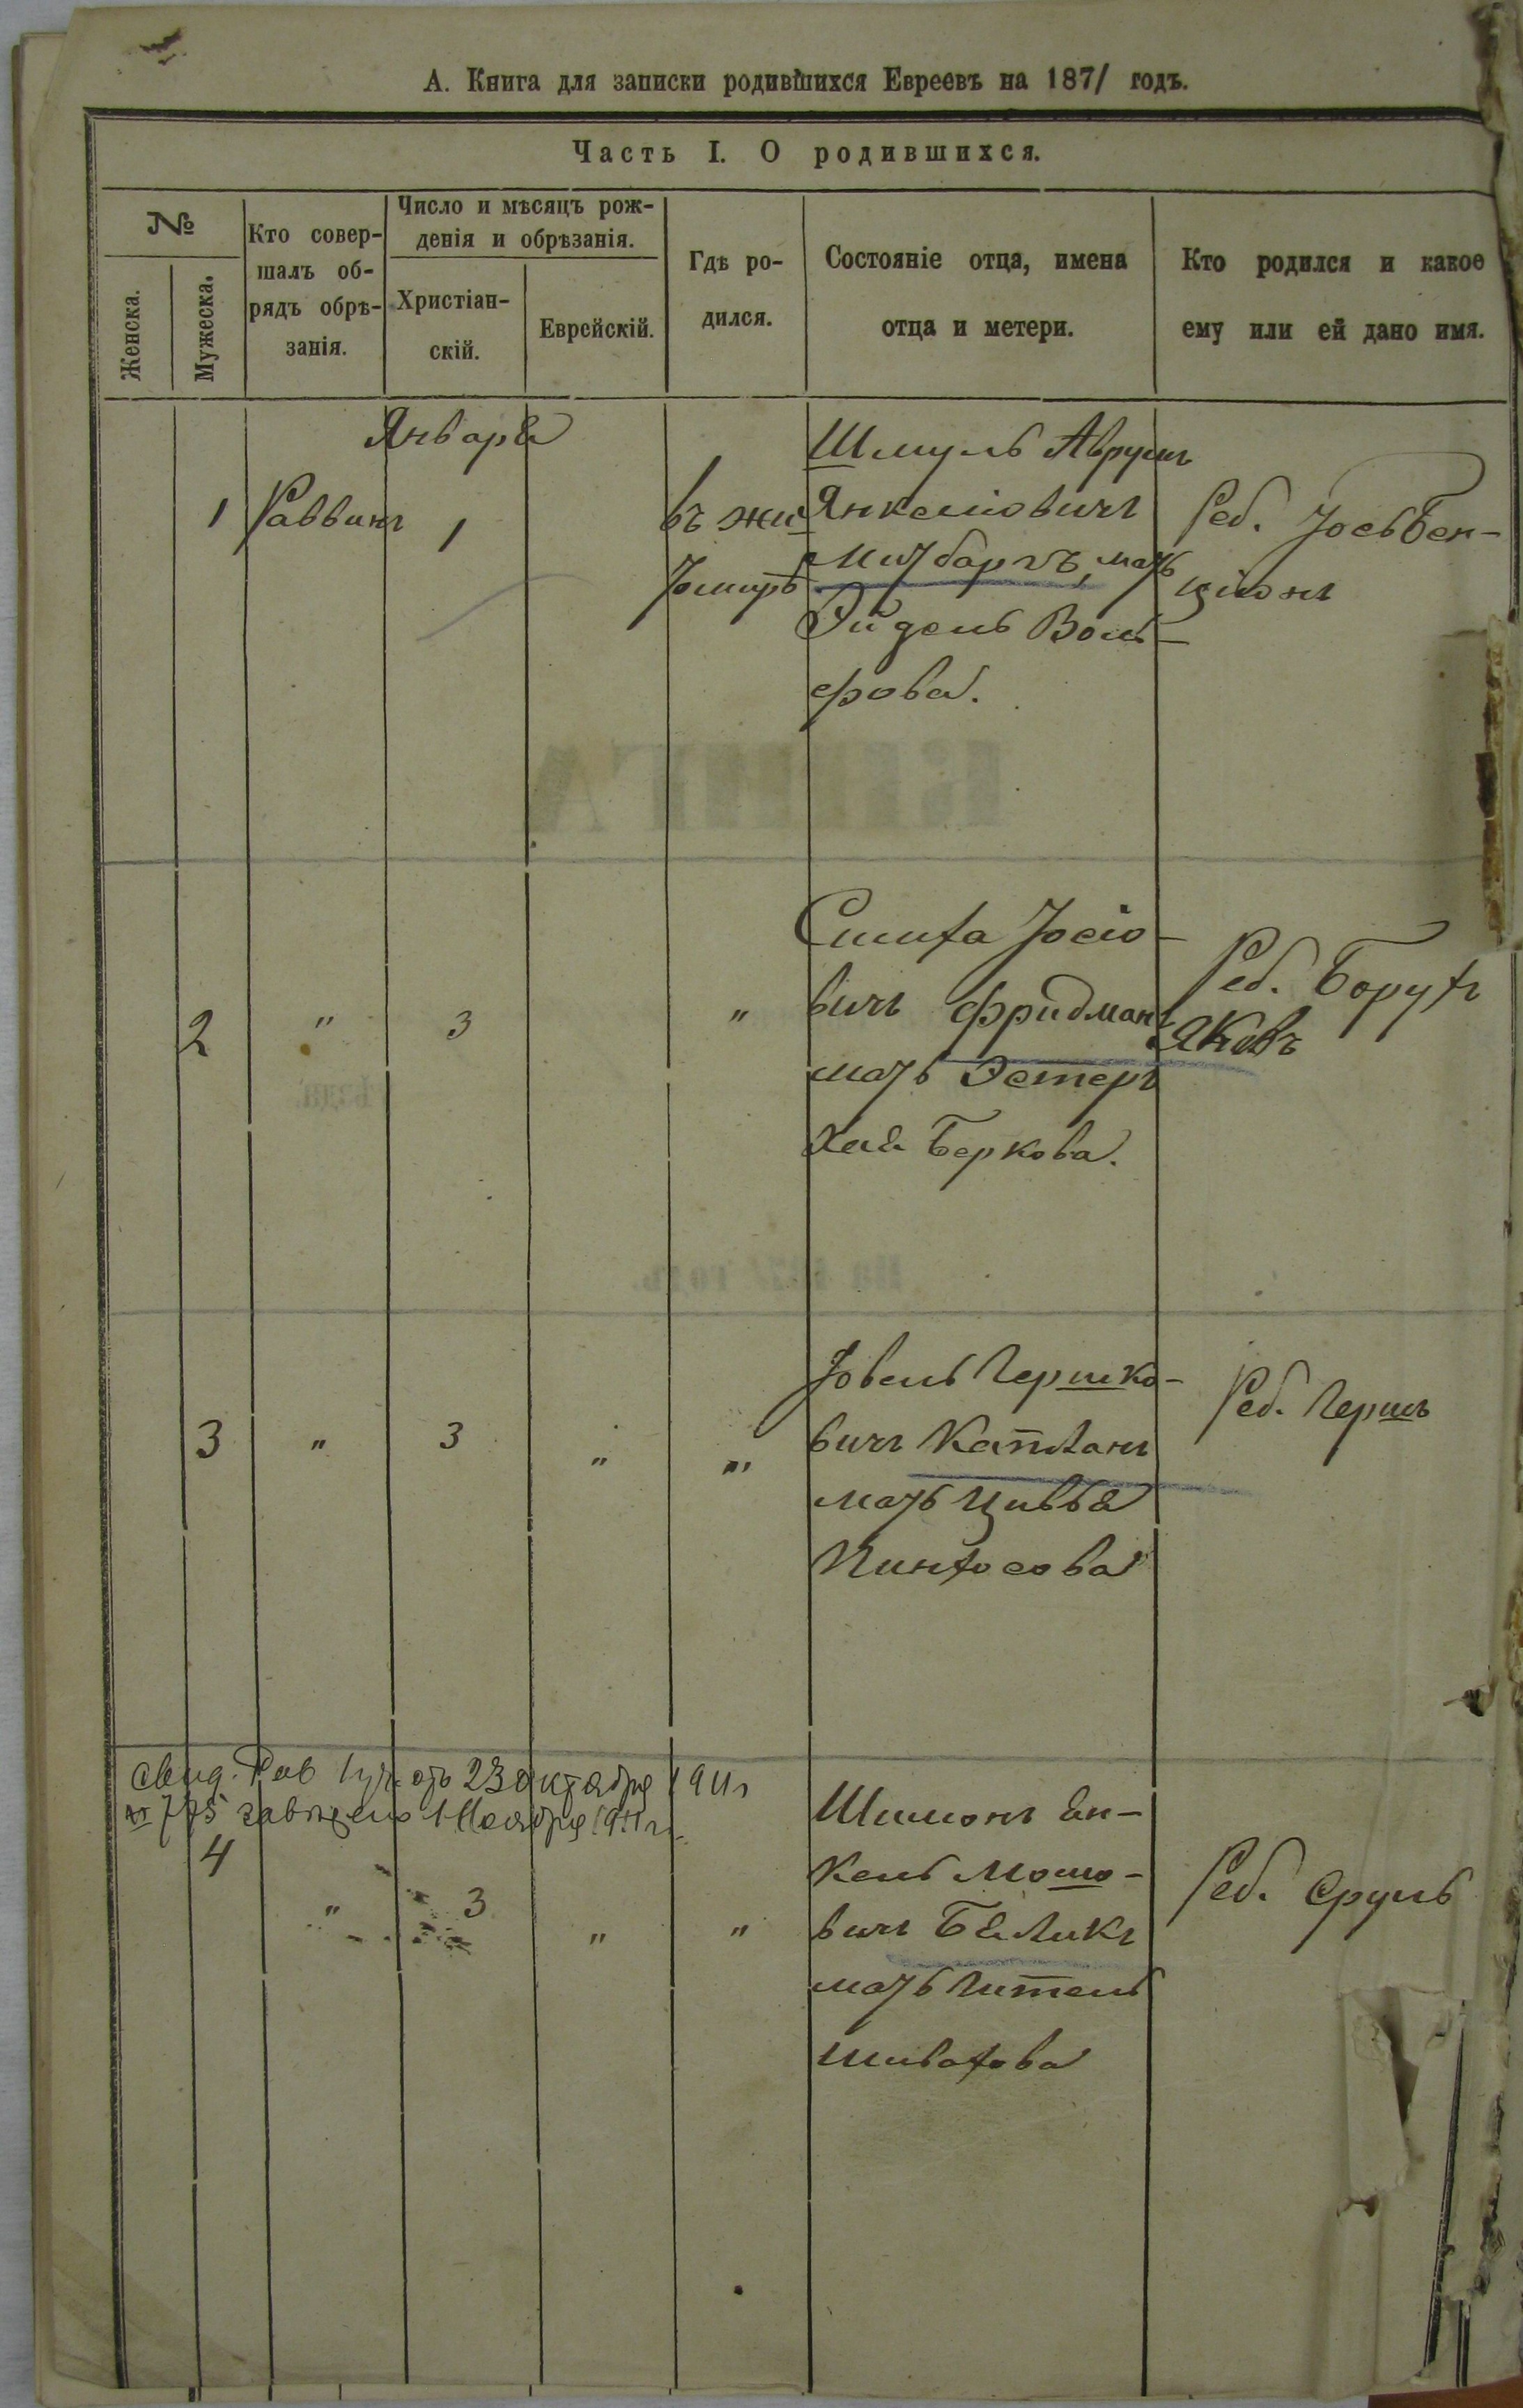 А. Книга для записки родившихся Евреевъ на 1871 годъ.
Часть I. О родившихся.
№
Женска.
Мужеска.
Кто совер-
шалъ об-
рядъ обрѣ-
занія.
Число и мѣсяцъ рож-
денія и обрѣзанія.
Христіан-
скій.
Еврейскій.
Гдѣ ро-
дился.
Состояніе отца, имена
отца и метери.
Кто родился и какое
ему или ей дано имя.
Января
1 Раввинъ 1
въ Жи
томирѣ
Шмуль Аврумъ
Янкеліовичъ
Митбаргъ, мать
Эйдель Воль-
фова.
Реб. Іось Бен-
ціонъ
2 " 3 "
Симха Іосіо-
вичъ Фридман
мать Эстеръ
Хая Беркова.
Реб. Борухъ
Яковъ
3 " 3 " "
Іовель Гершко-
вичъ Капланъ
мать Цивья
Пинхосова
Реб. Гершъ
Свид. Рав 1 уч. отъ 23 октября 1911г
№ 775 1 Ноября 1911 г.
4 " 3 " "
Шимонъ Ян-
кель Мошо-
вичъ Бяликъ
мать Гитель
Шивахова
Реб. Сруль